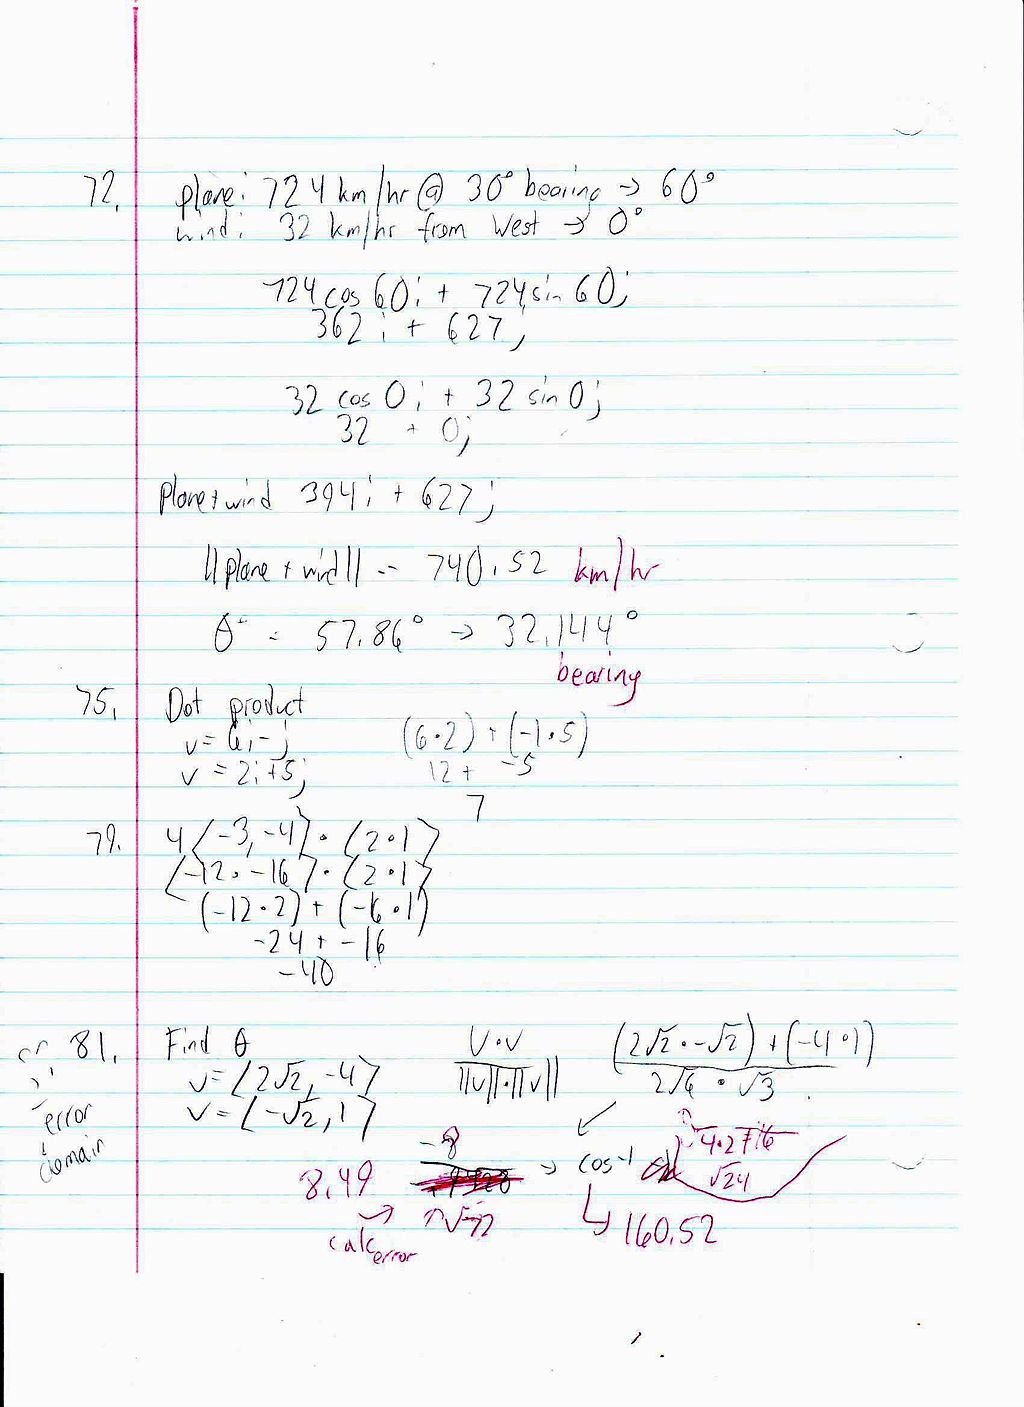 72. plane: 724 km/hr @ 30° bearing → 60°
wind: 32 km/hr from West → 0°
724 cos 60i + 724 sin 60j
362i + 627j
32 cos 0i + 32 sin 0j
32 + 0j
Plane+wind 394i + 627j
||plane + wind|| = 740.52 km/hr
θ = 57.86° → 32.144°
bearing
75. Dot product
v = 6i - j (6·2) + (-1·5)
v = 2i+5j 12 + -5
7
79. 4⟨-3, -4⟩ · ⟨2·1⟩
⟨-12·-16⟩ · ⟨2·1⟩
(-12·2) + (-16·1)
-24 + -16
-40
81. Find θ U·V (2√2·-√2) + (-4·1)
v = ⟨2√2, -4⟩ ||u||·||v|| 2√6 · √3
v = ⟨-√2, 1⟩
error
domain
-8 → cos⁻¹ √4·2+16
8.49 √24
↑√72 160.52
calc error